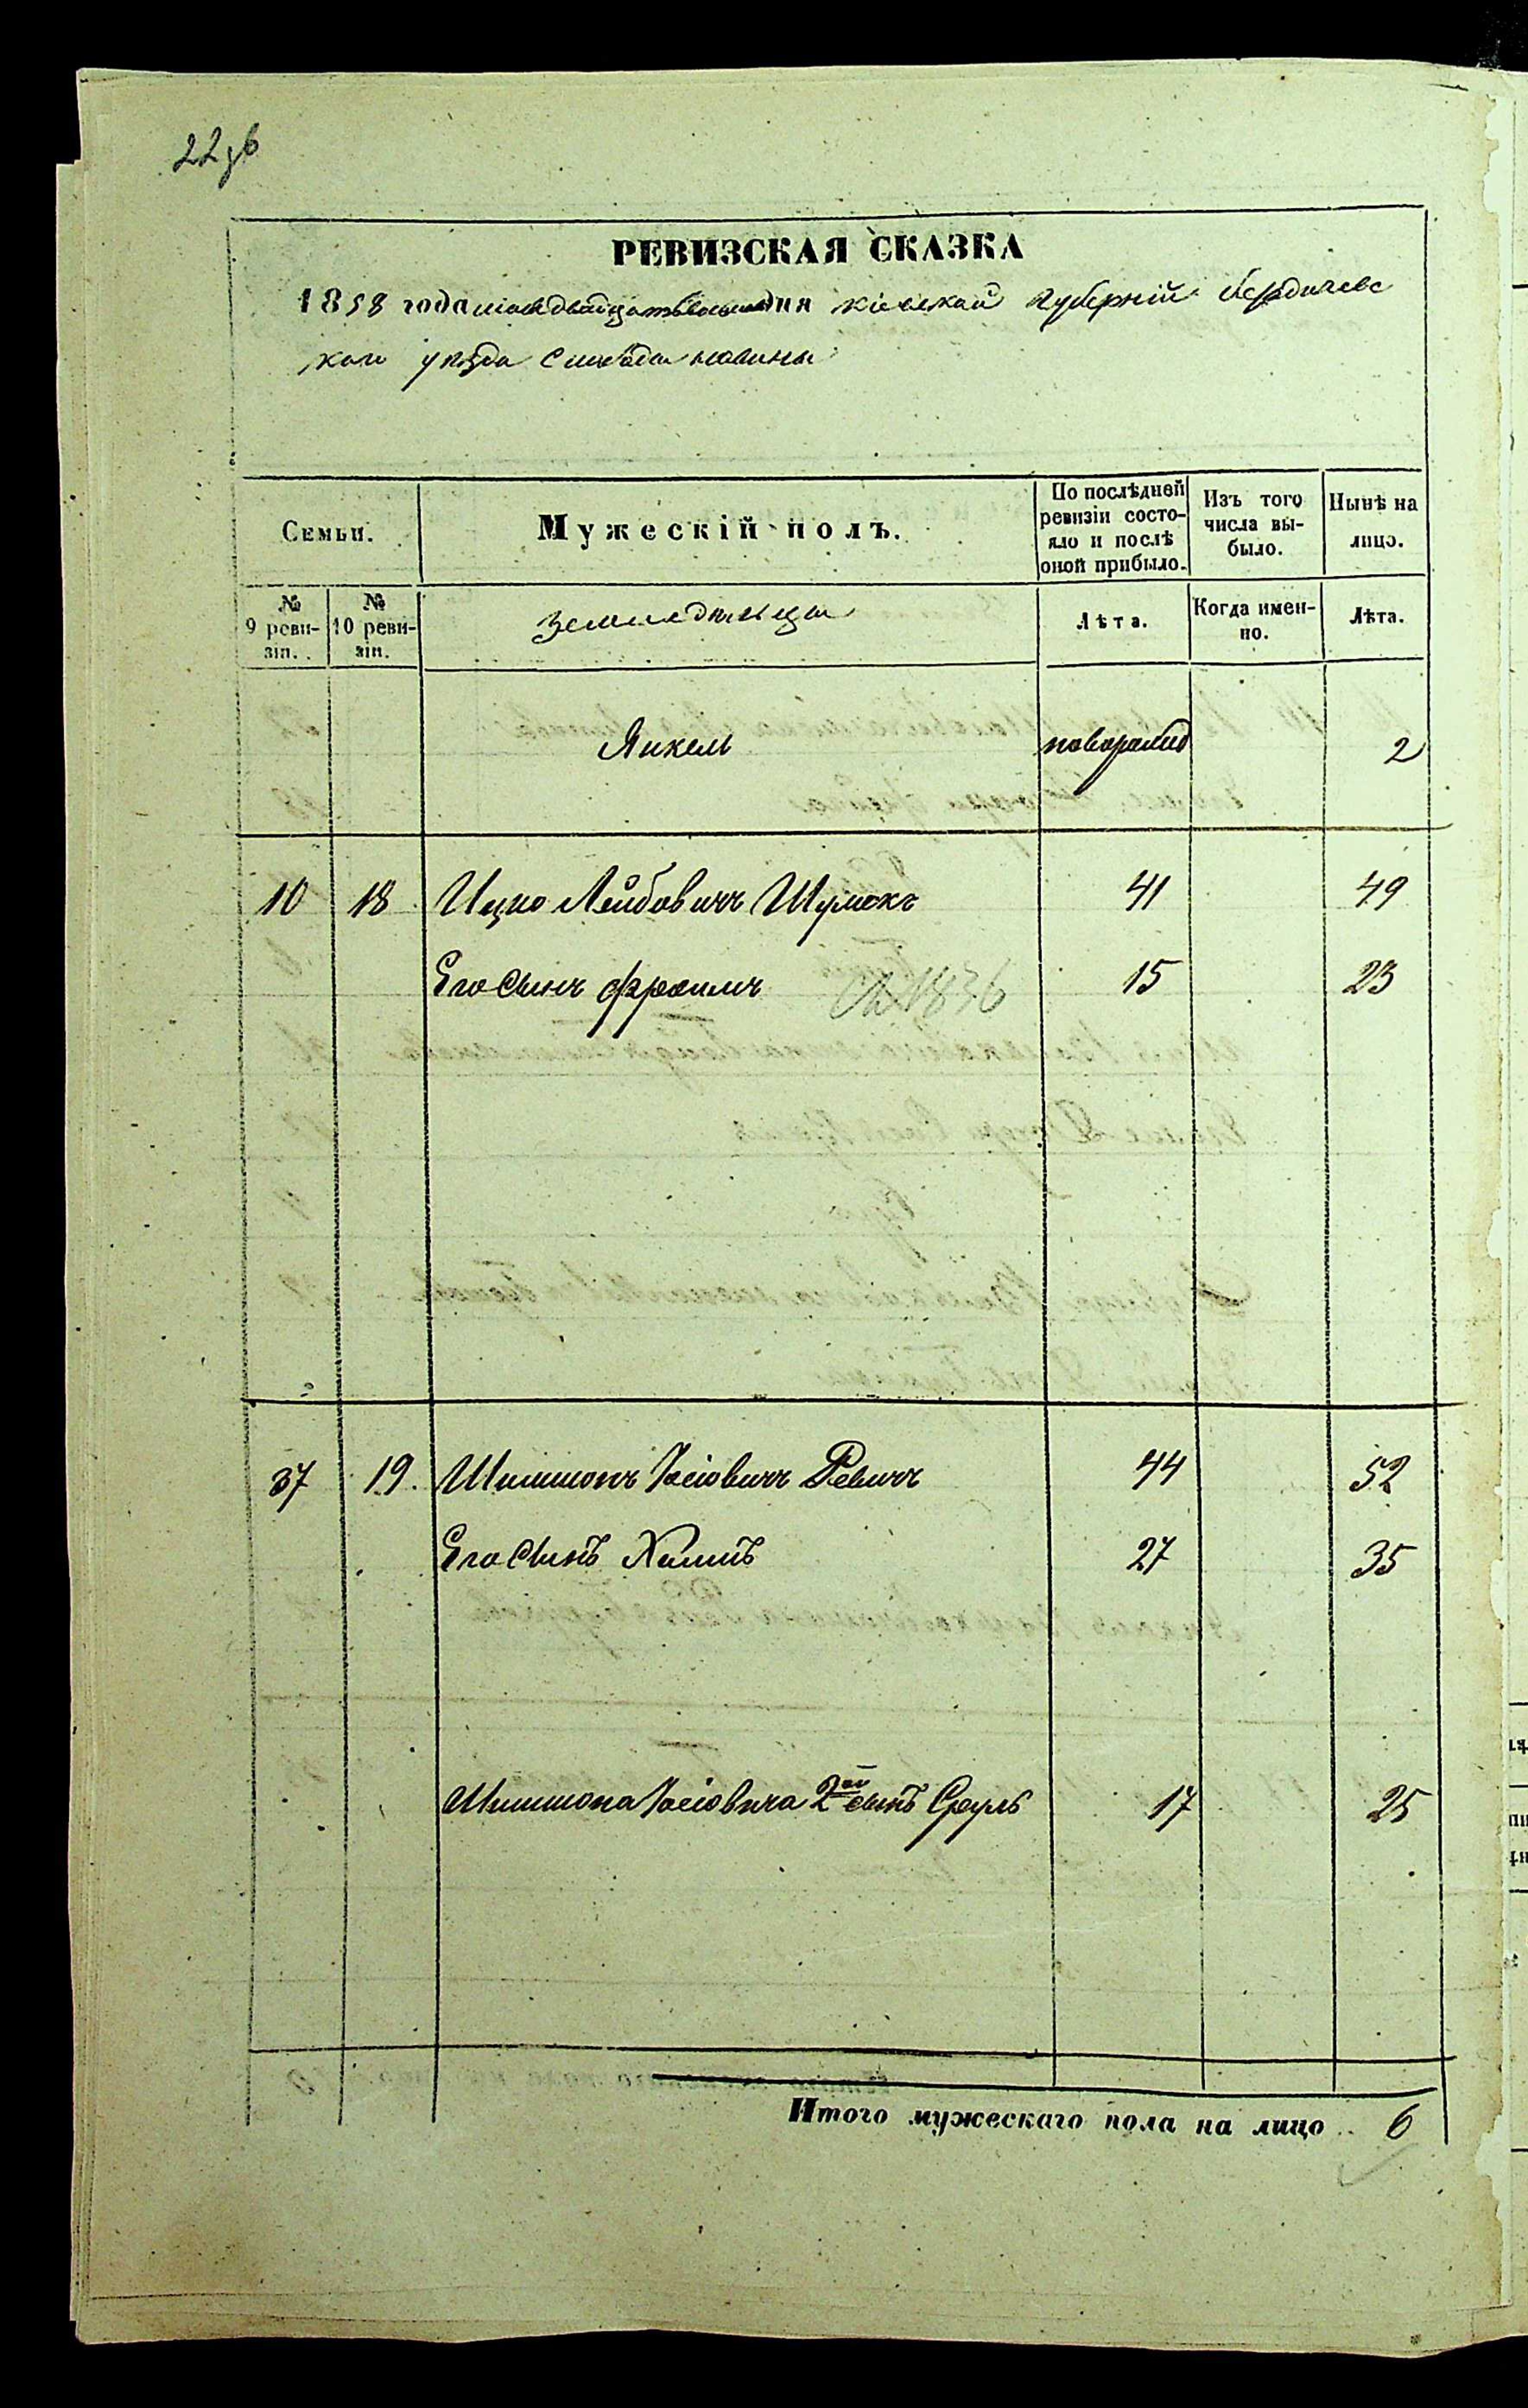 22 зв
РЕВИЗСКАЯ СКАЗКА
1858 года маія двадцать дня Кіевской губерніи Бердичевс
каго уѣзда
Семьи.
Мужескій полъ.
По послѣдней ревизіи состояло и послѣ оной прибыло.
Изъ того числа выбыло.
Нынѣ на лицо.
№ 9 ревизіи.
№ 10 ревизіи.
Земледельцы
Лѣта.
Когда именно.
Лѣта.
Янкель новорожд 2
10 18 Ицко Лейбовичъ Шумокъ 41 49
Его Сынъ Фроимъ 1836 15 23
37 19. Шимшонъ Іосіовичъ Ревичъ 44 52
Его Сынъ Хаимъ 27 35
Шимшона Іосіовича 2ой сынъ Сруль 17 25
Итого мужескаго пола на лицо .. 6